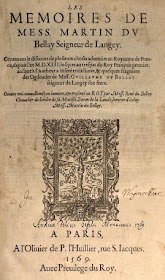 LES
MEMOIRES DE
MESS. MARTIN DV
Bellay Seigneur de Langey.
Contenans le discours de plusieurs choses aduenües au Royaume de France, depuis l'an M.D.XIII. iusques au trespas du Roy François premier,
ausquels l'Autheur a inseré trois liures, & quelques fragmens
des Ogdoades de Mess. GVILLAVME DV BELLAY
Seigneur de Langey son frere.
mis nouuellement en lumiere, & presenté au ROY par Mess. René du Bellay
Cheualier de l'ordre de sa Maiesté, Baron de la Lande, heritier d'iceluy
Mess. Martin du Bellay.
A PARIS,
A l'Oliuier de P. l'Huillier, rue S. Iacques.
1569.
Auec Priuilege du Roy.